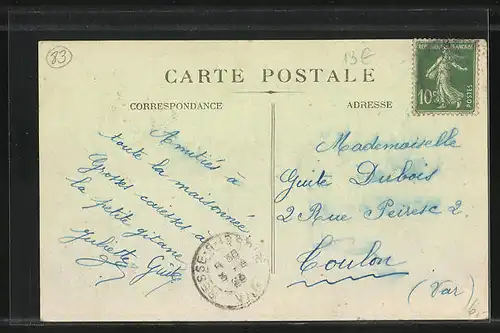 83
13€
CARTE POSTALE
CORRESPONDANCE
ADRESSE
REPUBLIQUE FRANÇAISE
10c
POSTES
Amitiés à
toute la maisonnée
Grosses caresses à
la petite gitane
Juliette
Mademoiselle
Guite Dubois
2 Rue Peiresc 2
Toulon
(Var)